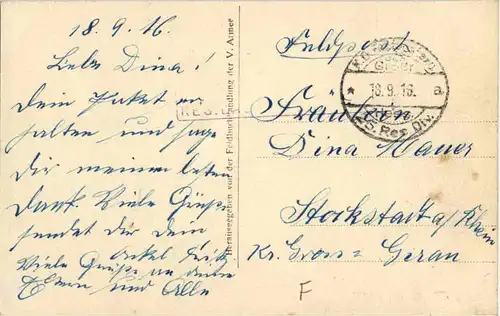 18.9.16.
Liebe Dina!
Dein Paket er
halten und sage
Dir meinen besten
Dank. Viele Grüße
sendet Dir Dein
Onkel Fritz
Viele Grüße an Deine
Eltern und Alle
Herausgegeben von der Feldbuchhandlung der V. Armee
Feldpost
18.9.16.
a
Res. Div.
Fräulein
Dina Mauer
Stockstadt a/Rhein
Kr. Gross-Gerau
F